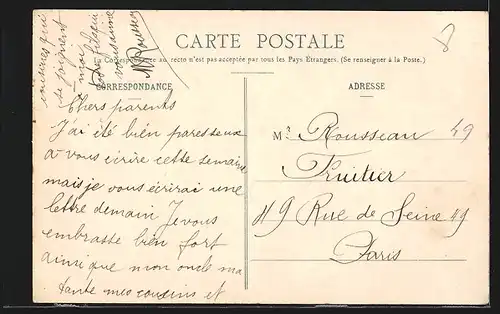 CARTE POSTALE
La Correspondance au recto n'est pas acceptée par tous les Pays Étrangers. (Se renseigner à la Poste.)
CORRESPONDANCE
Chers parents
J'ai été bien paresseux
a vous écrire cette semaine
mais je vous écrirai une
lettre demain Je vous
embrasse bien fort
ainsi que mon oncle ma
tante mes cousins et
cousines qui
se
moi
Votre fils qui
vous aime
Rousseau
ADRESSE
Mr Rousseau 49
Fruitier
49 Rue de Seine 49
Paris
8